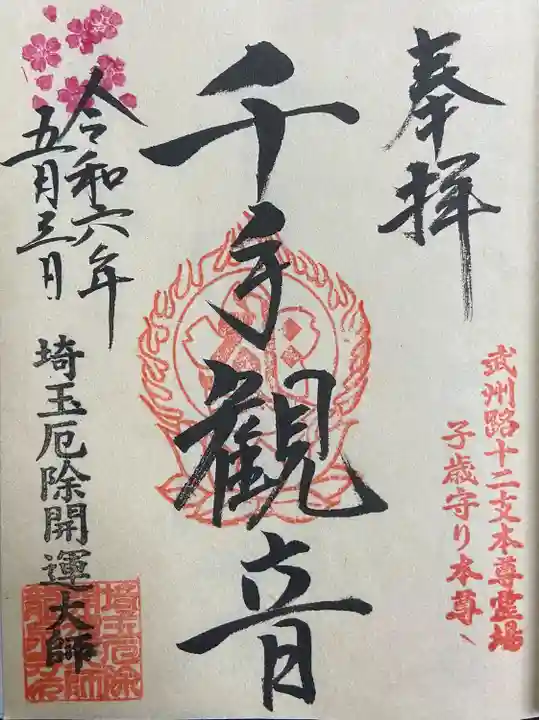 奉拝
武州路十二支本尊霊場
子歳守り本尊
千手観音
令和六年
五月三日
埼玉厄除開運大師